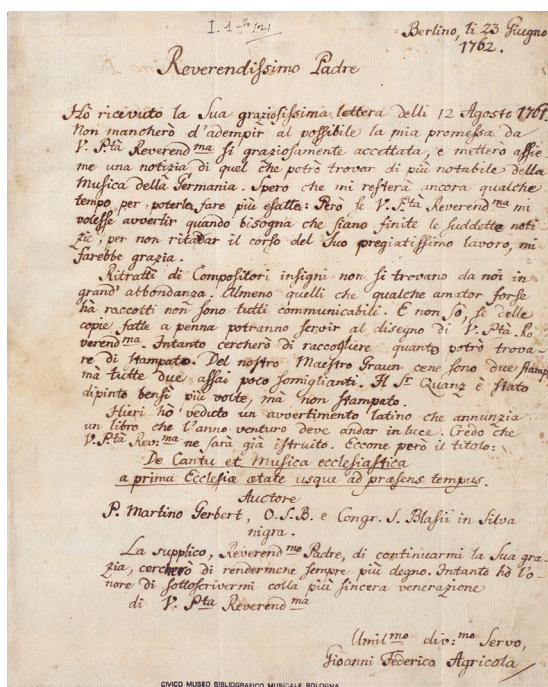 I. 1
Berlino, li 23 Giugno
1762.
Reverendissimo Padre
Hò ricevuto la Sua graziosissima lettera delli 12 Agosto 1761.
Non mancherò d'adempir al possibile la mia promessa da
V. Ptà Reverend.ma si graziosamente accettata, e metterò assie
me una notizia di quel che potrò trovar di più notabile della
Musica della Germania. Spero che mi resterà ancora qualche
tempo per poterla fare più esatta: Però se V. Ptà Reverend.ma mi
volesse avvertir quando bisogna che siano finite le suddette noti
zie, per non ritadar il corso del Suo pregiatissimo lavoro, mi
farebbe grazia.
Ritratti di Compositori insigni non si trovano da noi in
grand' abbondanza. Almeno quelli che qualche amator forse
hà raccolti non sono tutti communicabili. E non sò, se delle
copie fatte a penna potranno servir al disegno di V. Ptà Re
verend.ma. Intanto cercherò di raccogliere quanto potrò trova-
re di stampato. Del nostro Maestro Graun cene sono due stampe
mà tutte due assai poco somiglianti. Il Sr Quanz è stato
dipinto bensì più volte, mà non stampato.
Hieri hò veduto un avvertimento latino che annunzia
un libro che l'anno venturo deve andar in luce. Credo che
V. Ptà Rev:ma ne sarà già istruito. Eccone però il titolo:
De Cantu et Musica ecclesiastica
a prima Ecclesiæ ætate usque ad præsens tempus.
Auctore
P. Martino Gerbert, O.S.B. e Congr. S. Blasii in Silva
nigra.
La supplico, Reverend.mo Padre, di continuarmi la Sua gra-
zia, cercherò di rendermene sempre più degno. Intanto hò l'o-
nore di sottoscrivermi colla più sincera venerazione
di V. Ptà Reverend.ma
Umil.mo div:mo Servo,
Gioanni Federico Agricola
CIVICO MUSEO BIBLIOGRAFICO MUSICALE BOLOGNA